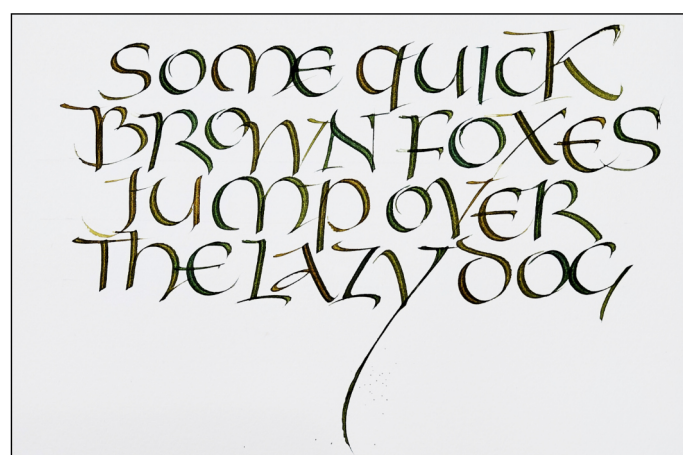 SOME QUICK
BROWN FOXES
JUMP OVER
THE LAZY DOG